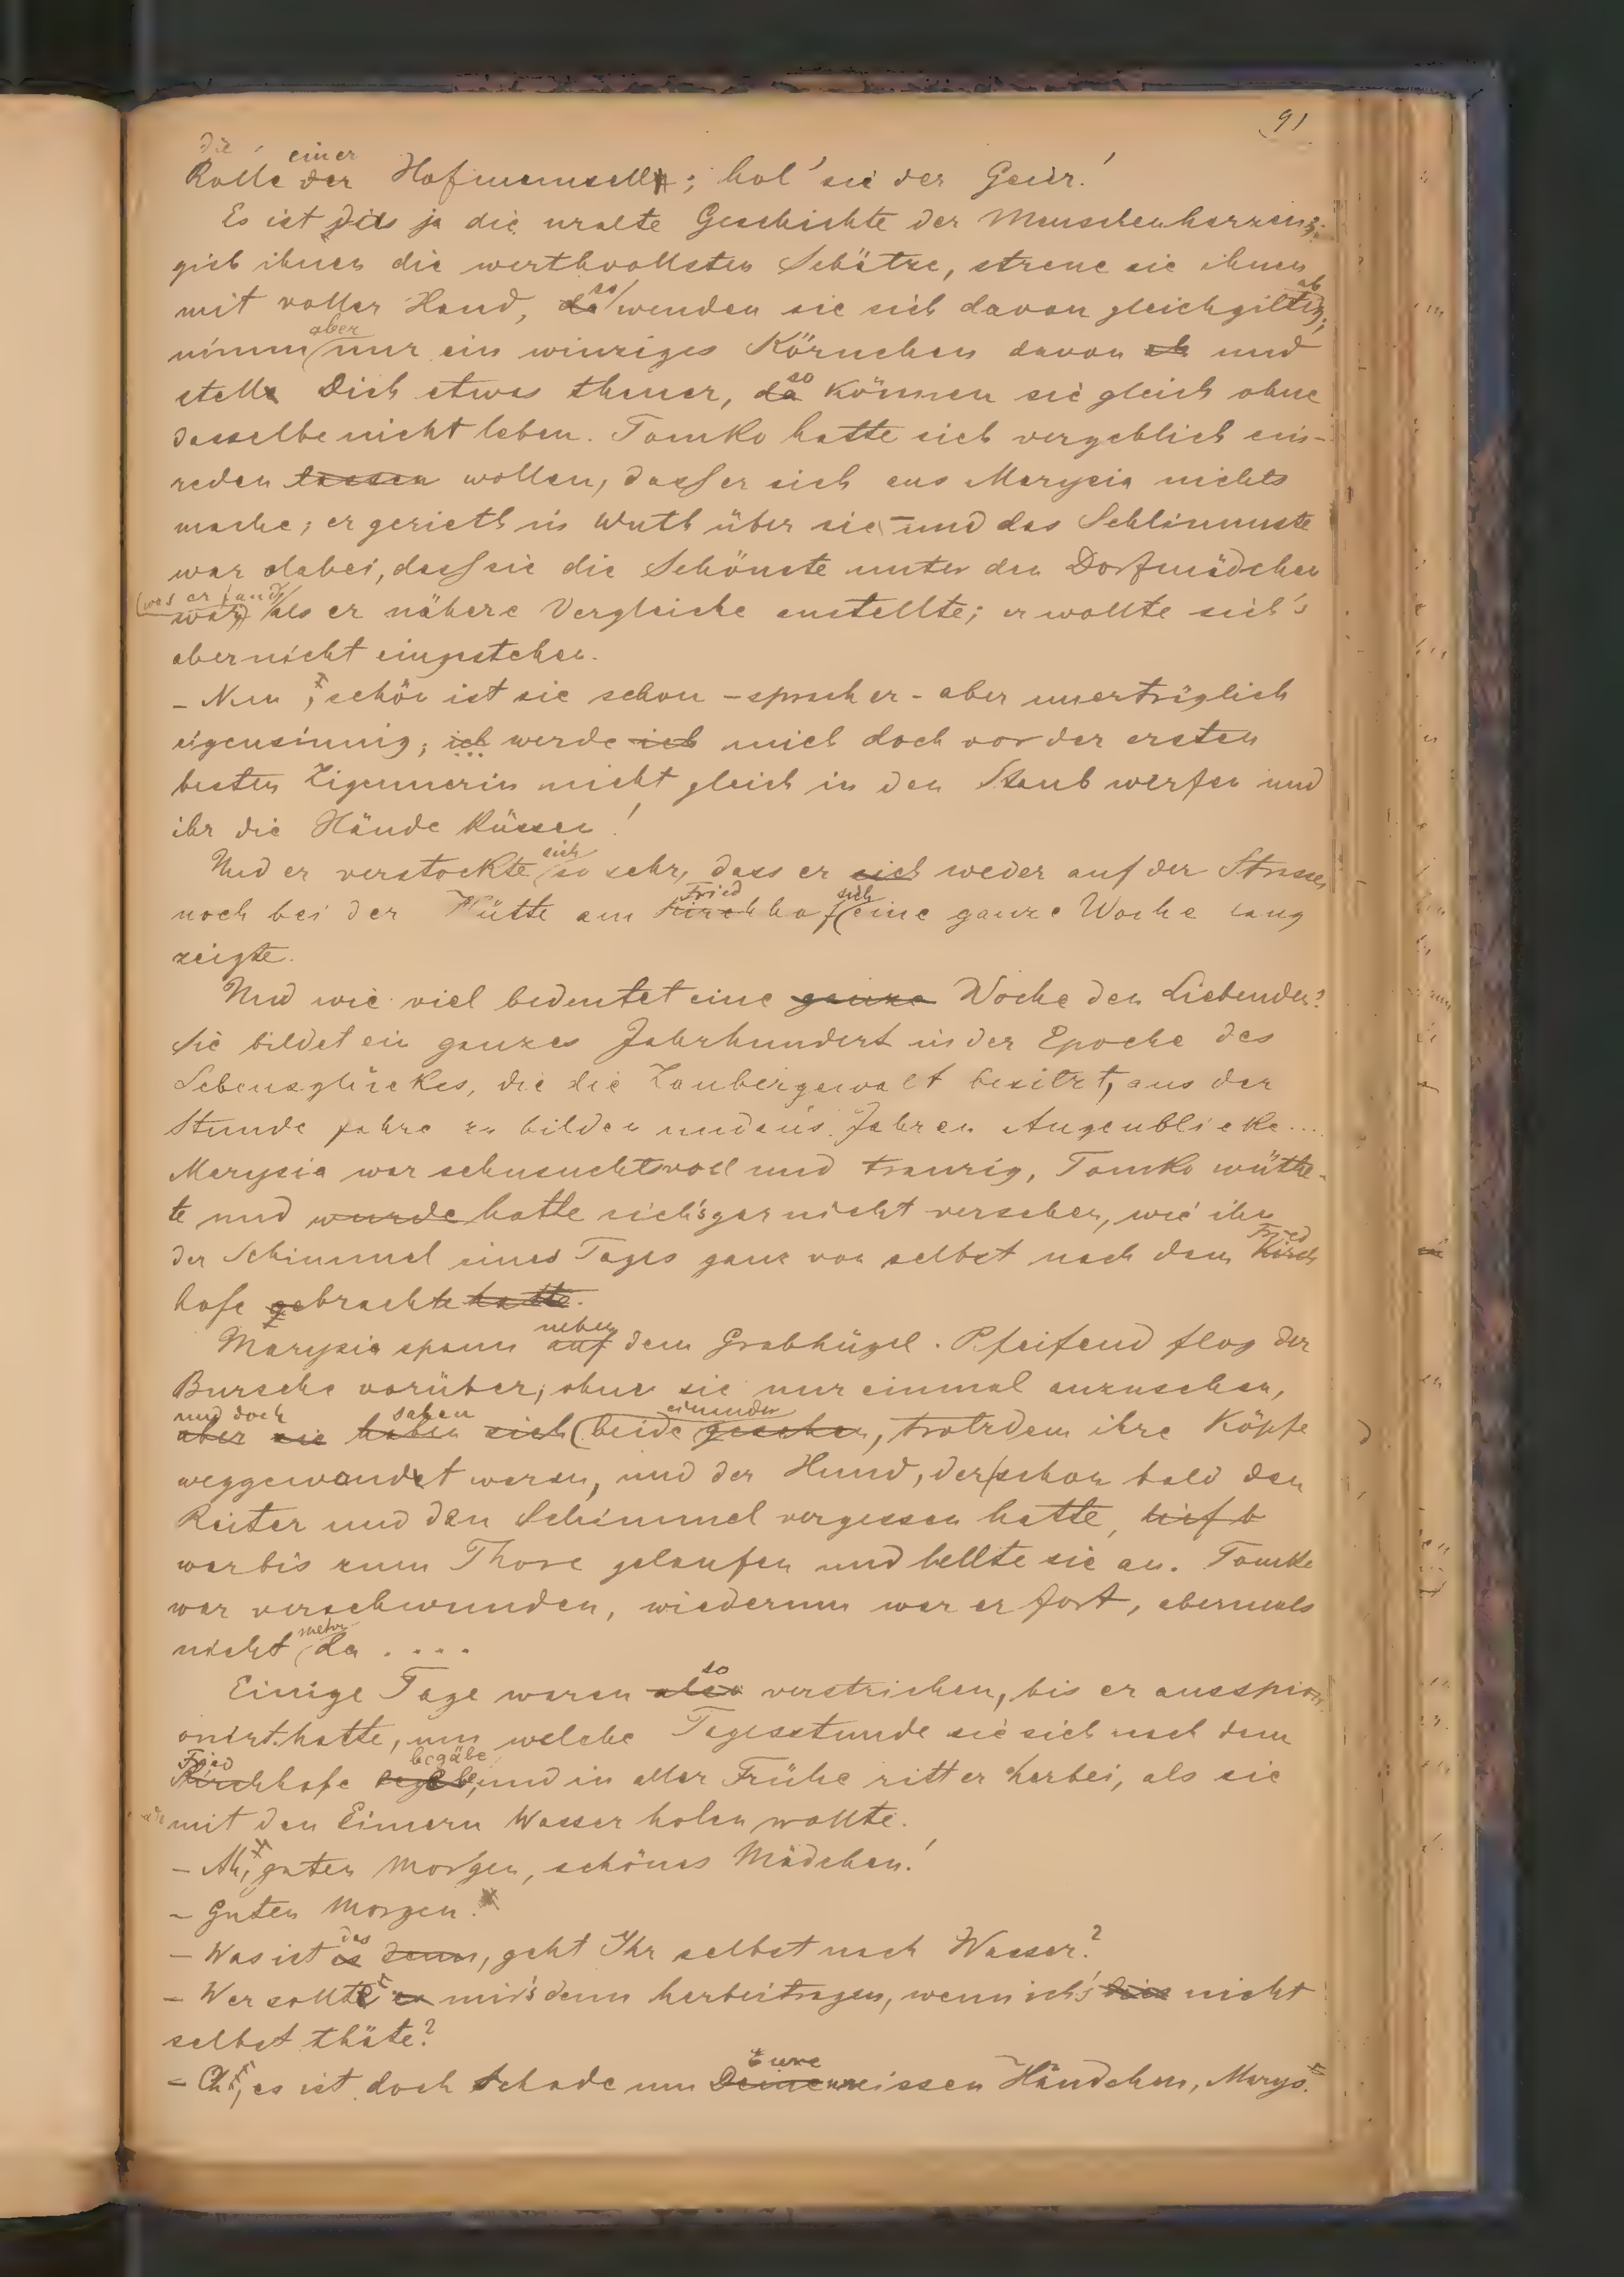 91
die einer
Rolle der Hofmamsell; hol' sie der Geier!
Es ist dies ja die uralte Geschichte der Menschenherzen;
gieb ihnen die werthvollsten Schätze, streue sie ihnen
mit voller Hand, da so wenden sie sich davon gleichgiltig ab;
nimm aber nur ein winziges Körnchen davon ab und
stelle Dich etwas theuer, da so können sie gleich ohne
dasselbe nicht leben. Tomko hatte sich vergeblich ein-
reden lassen wollen, dass er sich aus Marysia nichts
mache; er gerieth in Wuth über sie – und das Schlimmste
war dabei, dass sie die Schönste unter den Dorfmädchen
war, (was er fand) als er nähere Vergleiche anstellte; er wollte sich's
aber nicht eingestehen.
– Nun, schön ist sie schon – sprach er – aber unerträglich
eigensinnig; ich werde ich mich doch vor der ersten
besten Zigeunerin nicht gleich in den Staub werfen und
ihr die Hände küssen!
Und er verstockte sich so sehr, dass er sich weder auf der Strasse,
noch bei der Hütte am Kirchhof Fried sich eine ganze Woche lang
zeigte.
Und wie viel bedeutet eine ganze Woche den Liebenden?
Sie bildet ein ganzes Jahrhundert in der Epoche des
Lebensglückes, die die Zaubergewalt besitzt, aus der
Stunde Jahre zu bilden und aus Jahren Augenblicke....
Marysia war sehnsuchtsvoll und traurig, Tomko wüthe-
te und wurde hatte sich's gar nicht versehen, wie ihn
der Schimmel eines Tages ganz von selbst nach dem Kirch Fried
hofe gebrachte hatte.
Marysia spann auf neben dem Grabhügel. Pfeifend flog der
Bursche vorüber, ohne sie nur einmal anzusehen,
und doch sahen einander
aber sie haben sich beide gesehen, trotzdem ihre Köpfe
weggewandt waren, und der Hund, der schon bald den
Reiter und den Schimmel vergessen hatte, lief b
war bis zum Thore gelaufen und bellte sie an. Tomko
war verschwunden, wiederum war er fort, abermals
nicht mehr da ....
Einige Tage waren also so verstrichen, bis er ausspi-
onirt hatte, um welche Tagesstunde sie sich nach dem
Fried begäbe
Kirchhofe begebe, und in aller Frühe ritt er herbei, als sie
mit den Eimern Wasser holen wollte.
– Ah, guten Morgen, schönes Mädchen!
– Guten Morgen.
– Was ist es das denn, geht Ihr selbst nach Wasser?
– Wer sollte es mir's denn herbeitragen, wenn ich's dies nicht
selbst thäte?
– Oh, es ist doch Schade um Deine Eure weissen Händchen, Marys.